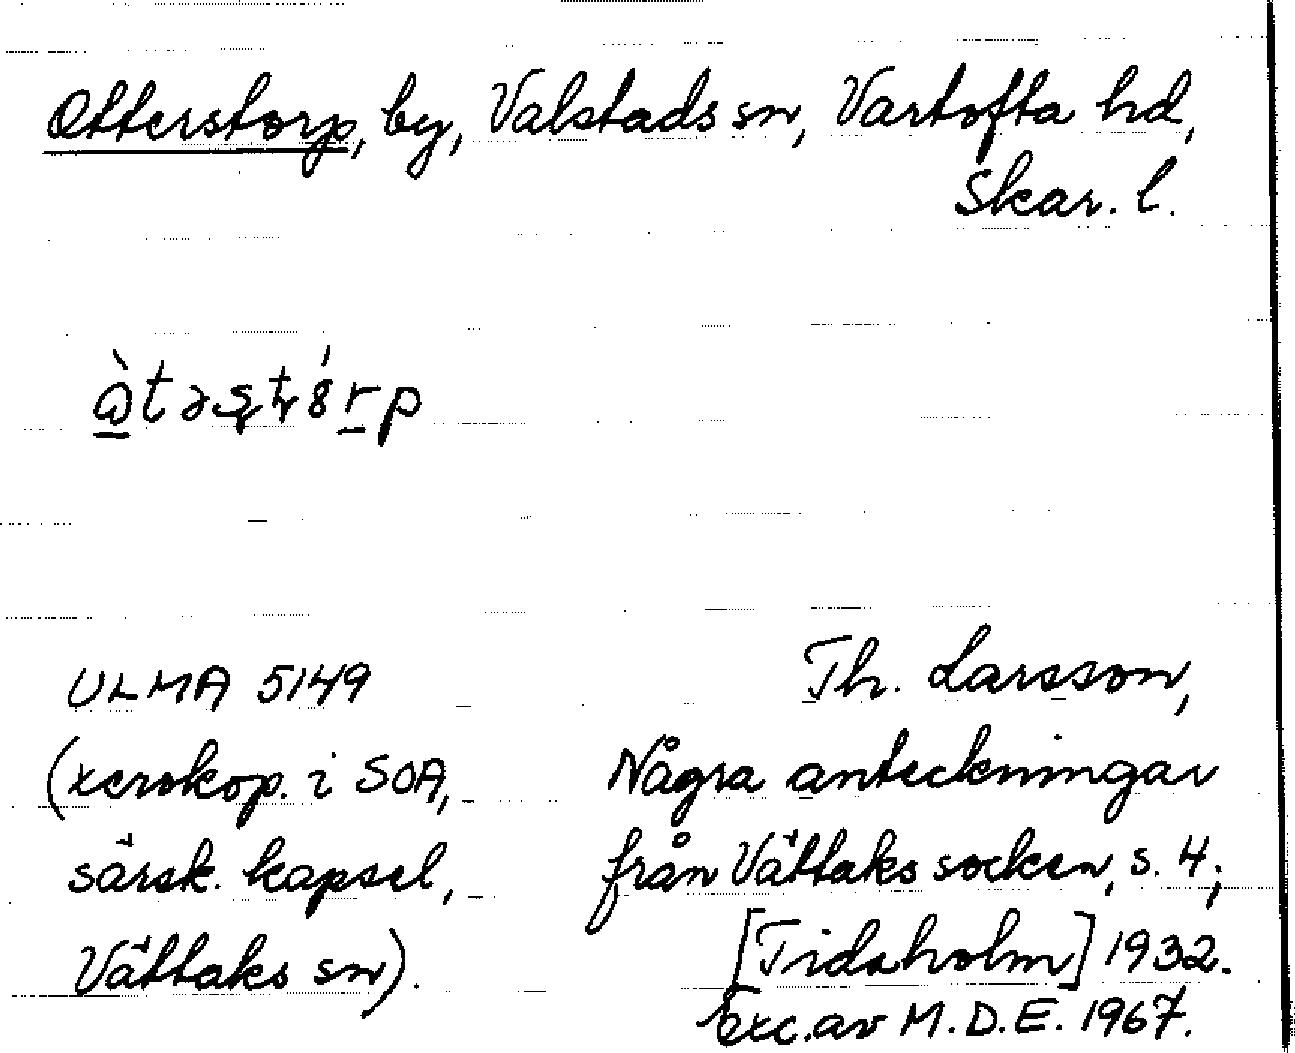 Otterstorp, by, Valstads sn, Vartofta hd,
Skar. l.
ULMA 5149
(xerokop. i SOA,
särsk. kapsel,
Vättaks sn).
Th. Larsson,
Några anteckningar
från Vättaks socken, s. 4;
[Tidaholm] 1932.
Exc. av M.D.E. 1967.